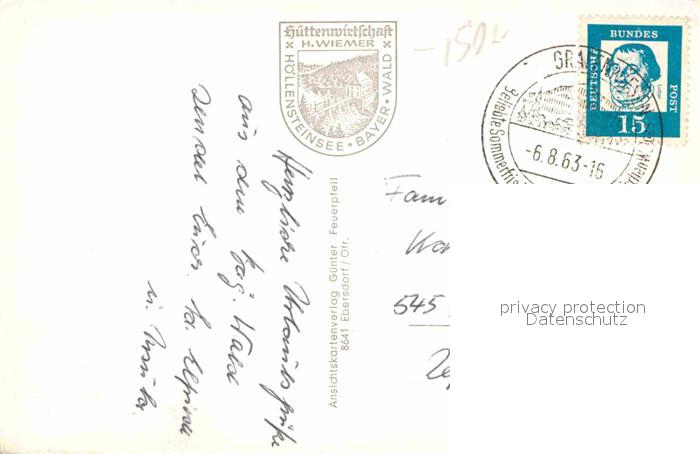 Hüttenwirtschaft
H. WIEMER
HÖLLENSTEINSEE • BAYER. WALD
-150
DEUTSCHE
BUNDES
POST
15
GRAFEN
Beliebte Sommerfri
-6.8.63-16
Herzliche Urlaubsgrüße
aus dem bay. Wald
sendet Euch
Elfriede
u.
Ansichtskartenverlag Günter Feuerpfeil
8641 Ebersdorf/Ofr.
Fam
545
privacy protection
Datenschutz